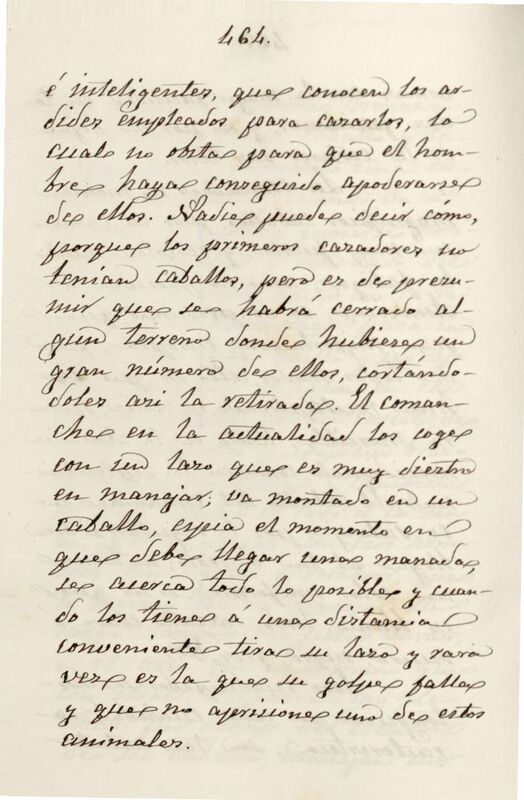 464.
é inteligentes, que conocen los ar-
dides empleados para cazarlos, lo
cual no obsta para que el hom-
bre haya conseguido apoderarse
de ellos. Nadie puede decir cómo,
porque los primeros cazadores no
tenían caballos, pero es de prezu-
mir que se habrá cerrado al
gún terreno donde hubiese un
gran número de ellos, cortándo-
doles asi la retirada. El coman-
che en la actualidad los coge
con un lazo que es muy diestro
en manejar; va montado en un
caballo, espia el momento en
que debe llegar una manada,
se acerca todo lo posible y cuan-
do los tiene á una distancia
conveniente tira su lazo y rara
vez es la que su golpe falla
y que no aprisione uno de estos
animales.